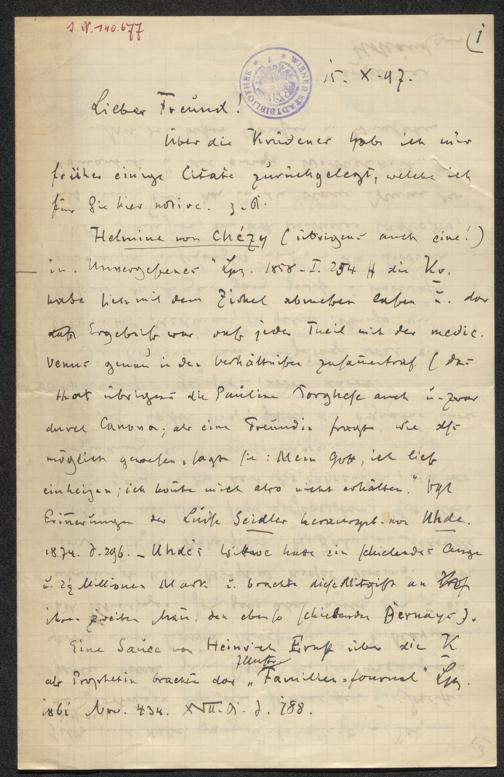 J. N. 140.677
(1
WIENER STADTBIBLIOTHEK
15. X. 97.
Lieber Freund!
Über die Krüdener habe ich mir
früher einige Citate zurückgelegt, welche ich
für Sie hier notire. z. B.
Helmine von Chézy (übrigens auch eine!)
in „Unvergessenes" Lpz. 1858. I. 254 die Kr.
habe sich mit dem Zirkel abmessen lassen u. das
Ergebniß war, daß jeder Theil mit der medic.
Venus genau in den Verhältnissen zusammentraf (das
that übrigens die Pauline Borghese auch u. zwar
durch Canova; als eine Freundin fragte wie dß
möglich gewesen, sagte sie: Mein Gott, ich ließ
einheizen; ich konte mich also nicht erkälten." Vgl
Erinnerungen der Luise Seidler herausgegeb. von Uhde.
1874. S. 296. – Uhde's Wittwe hatte ein schielendes Auge
u. 2½ Millionen Mark u. brachte diese Mitgift an
ihren zweiten Mann, den ebenso schielenden Bernays).
Eine von Heinrich Ernst über die K
als Prophetin brachte das „Illustr. Familien-Journal" Lpz.
1861 Nro. 434. XVII. Bd. S. 188.